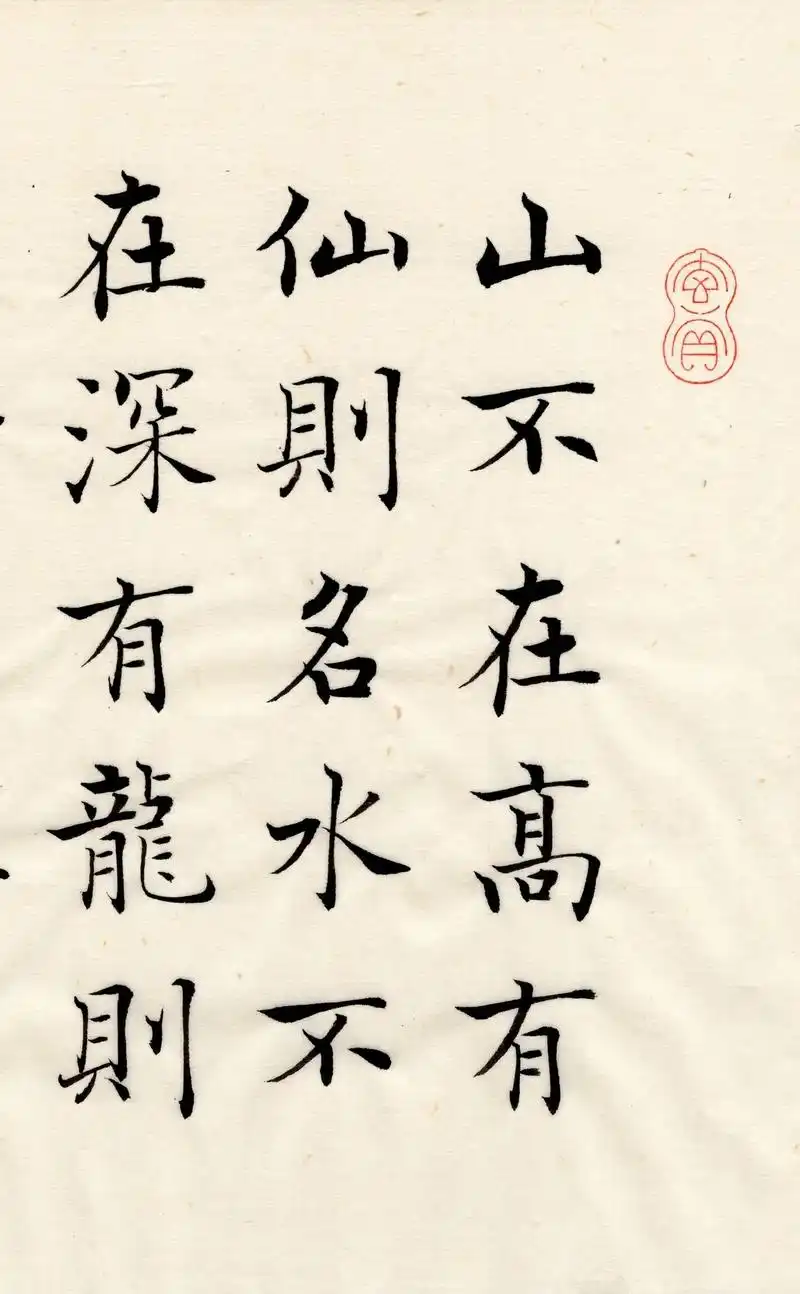 山不在髙有
仙則名水不
在深有龍則